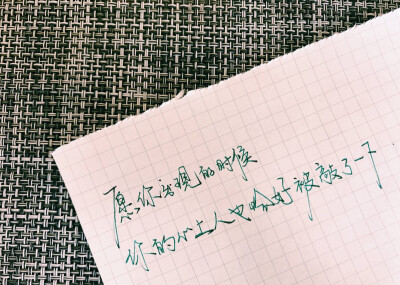 愿你发现的时候
你的心上人也恰好被敲了一下